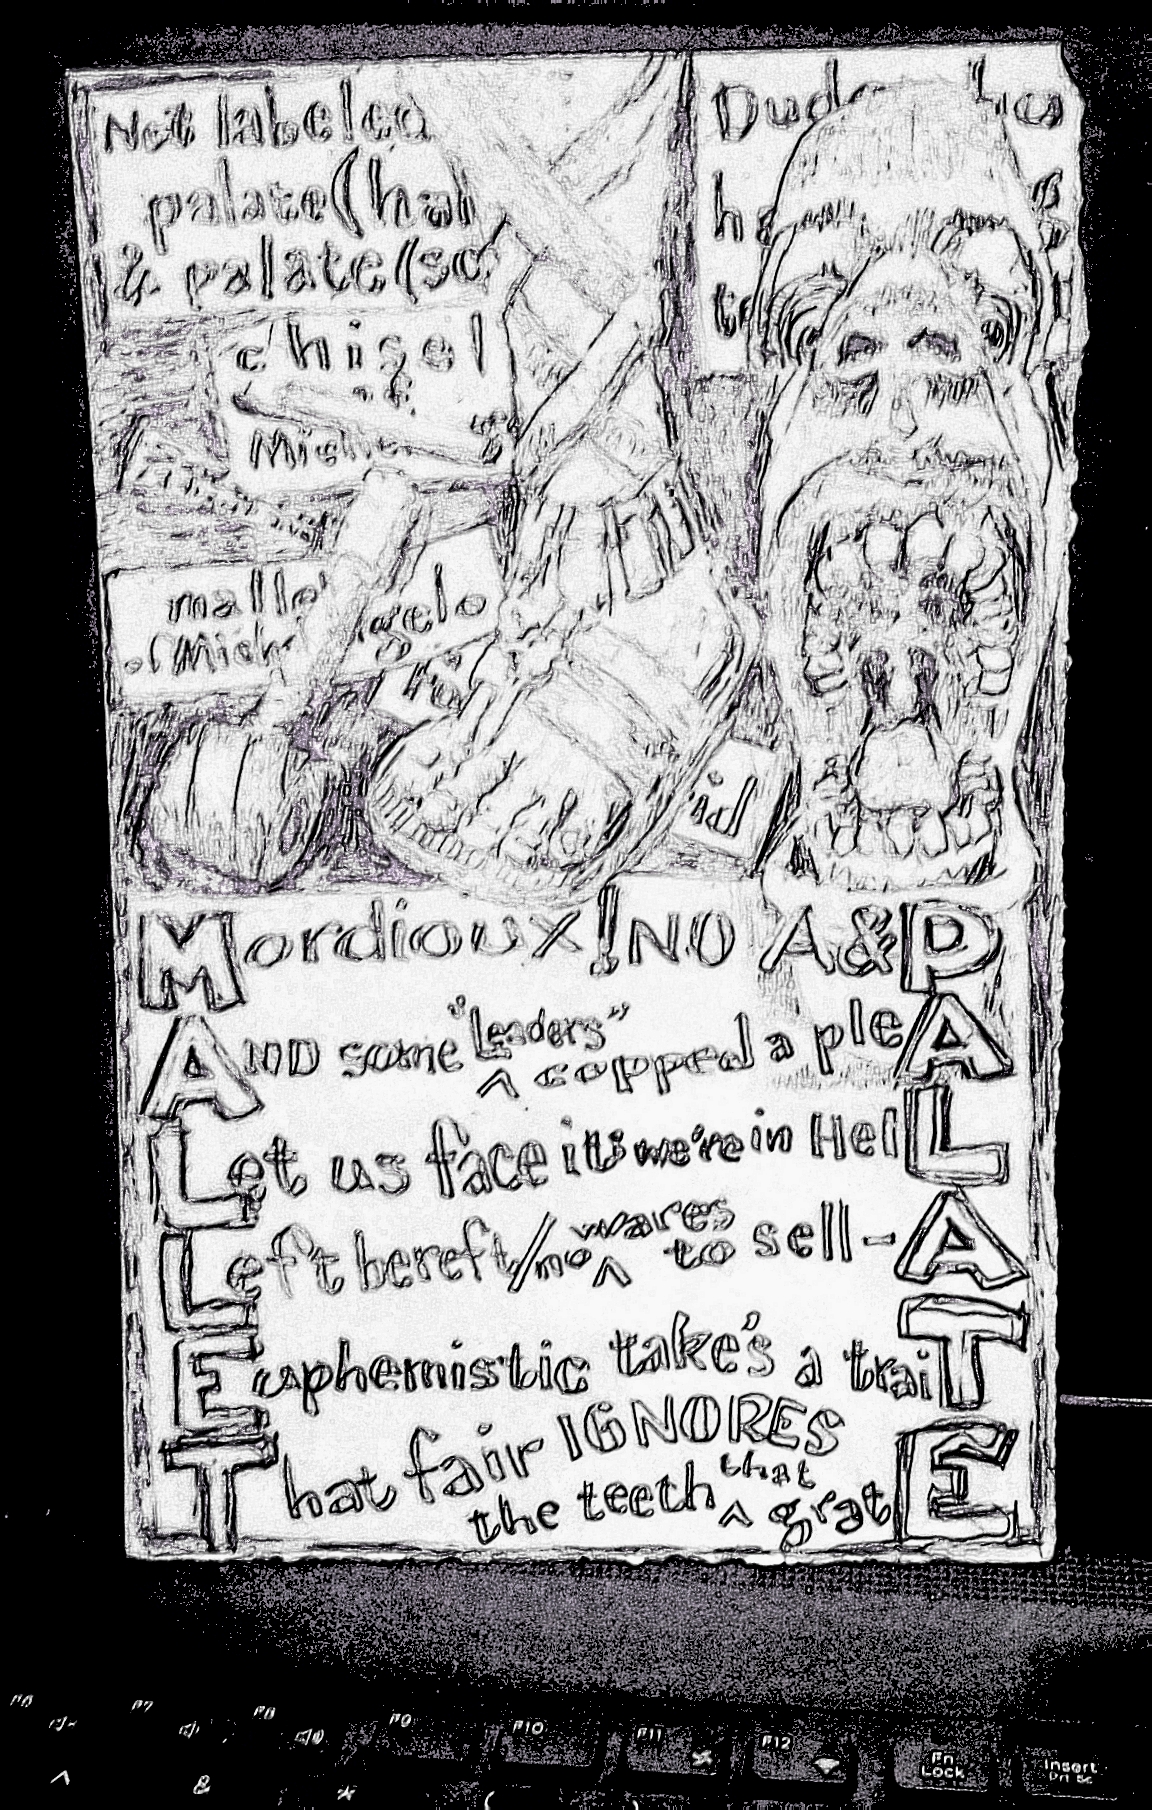 Not labeled
palate (hal
& palate (so
chisel
of
mallet
of Michelangelo
id
Mordioux! NO A&P
AND some "Leaders" copped a pleA
Let us face it: we're in HelL
Left bereft/no wares to sell-A
Euphemistic take's a traiT
That fair IGNORES
the teeth that gratE
F6
F7
F8
F9
F10
F11
F12
Fn
Lock
Insert
Prt Sc
^
&
*
(
)